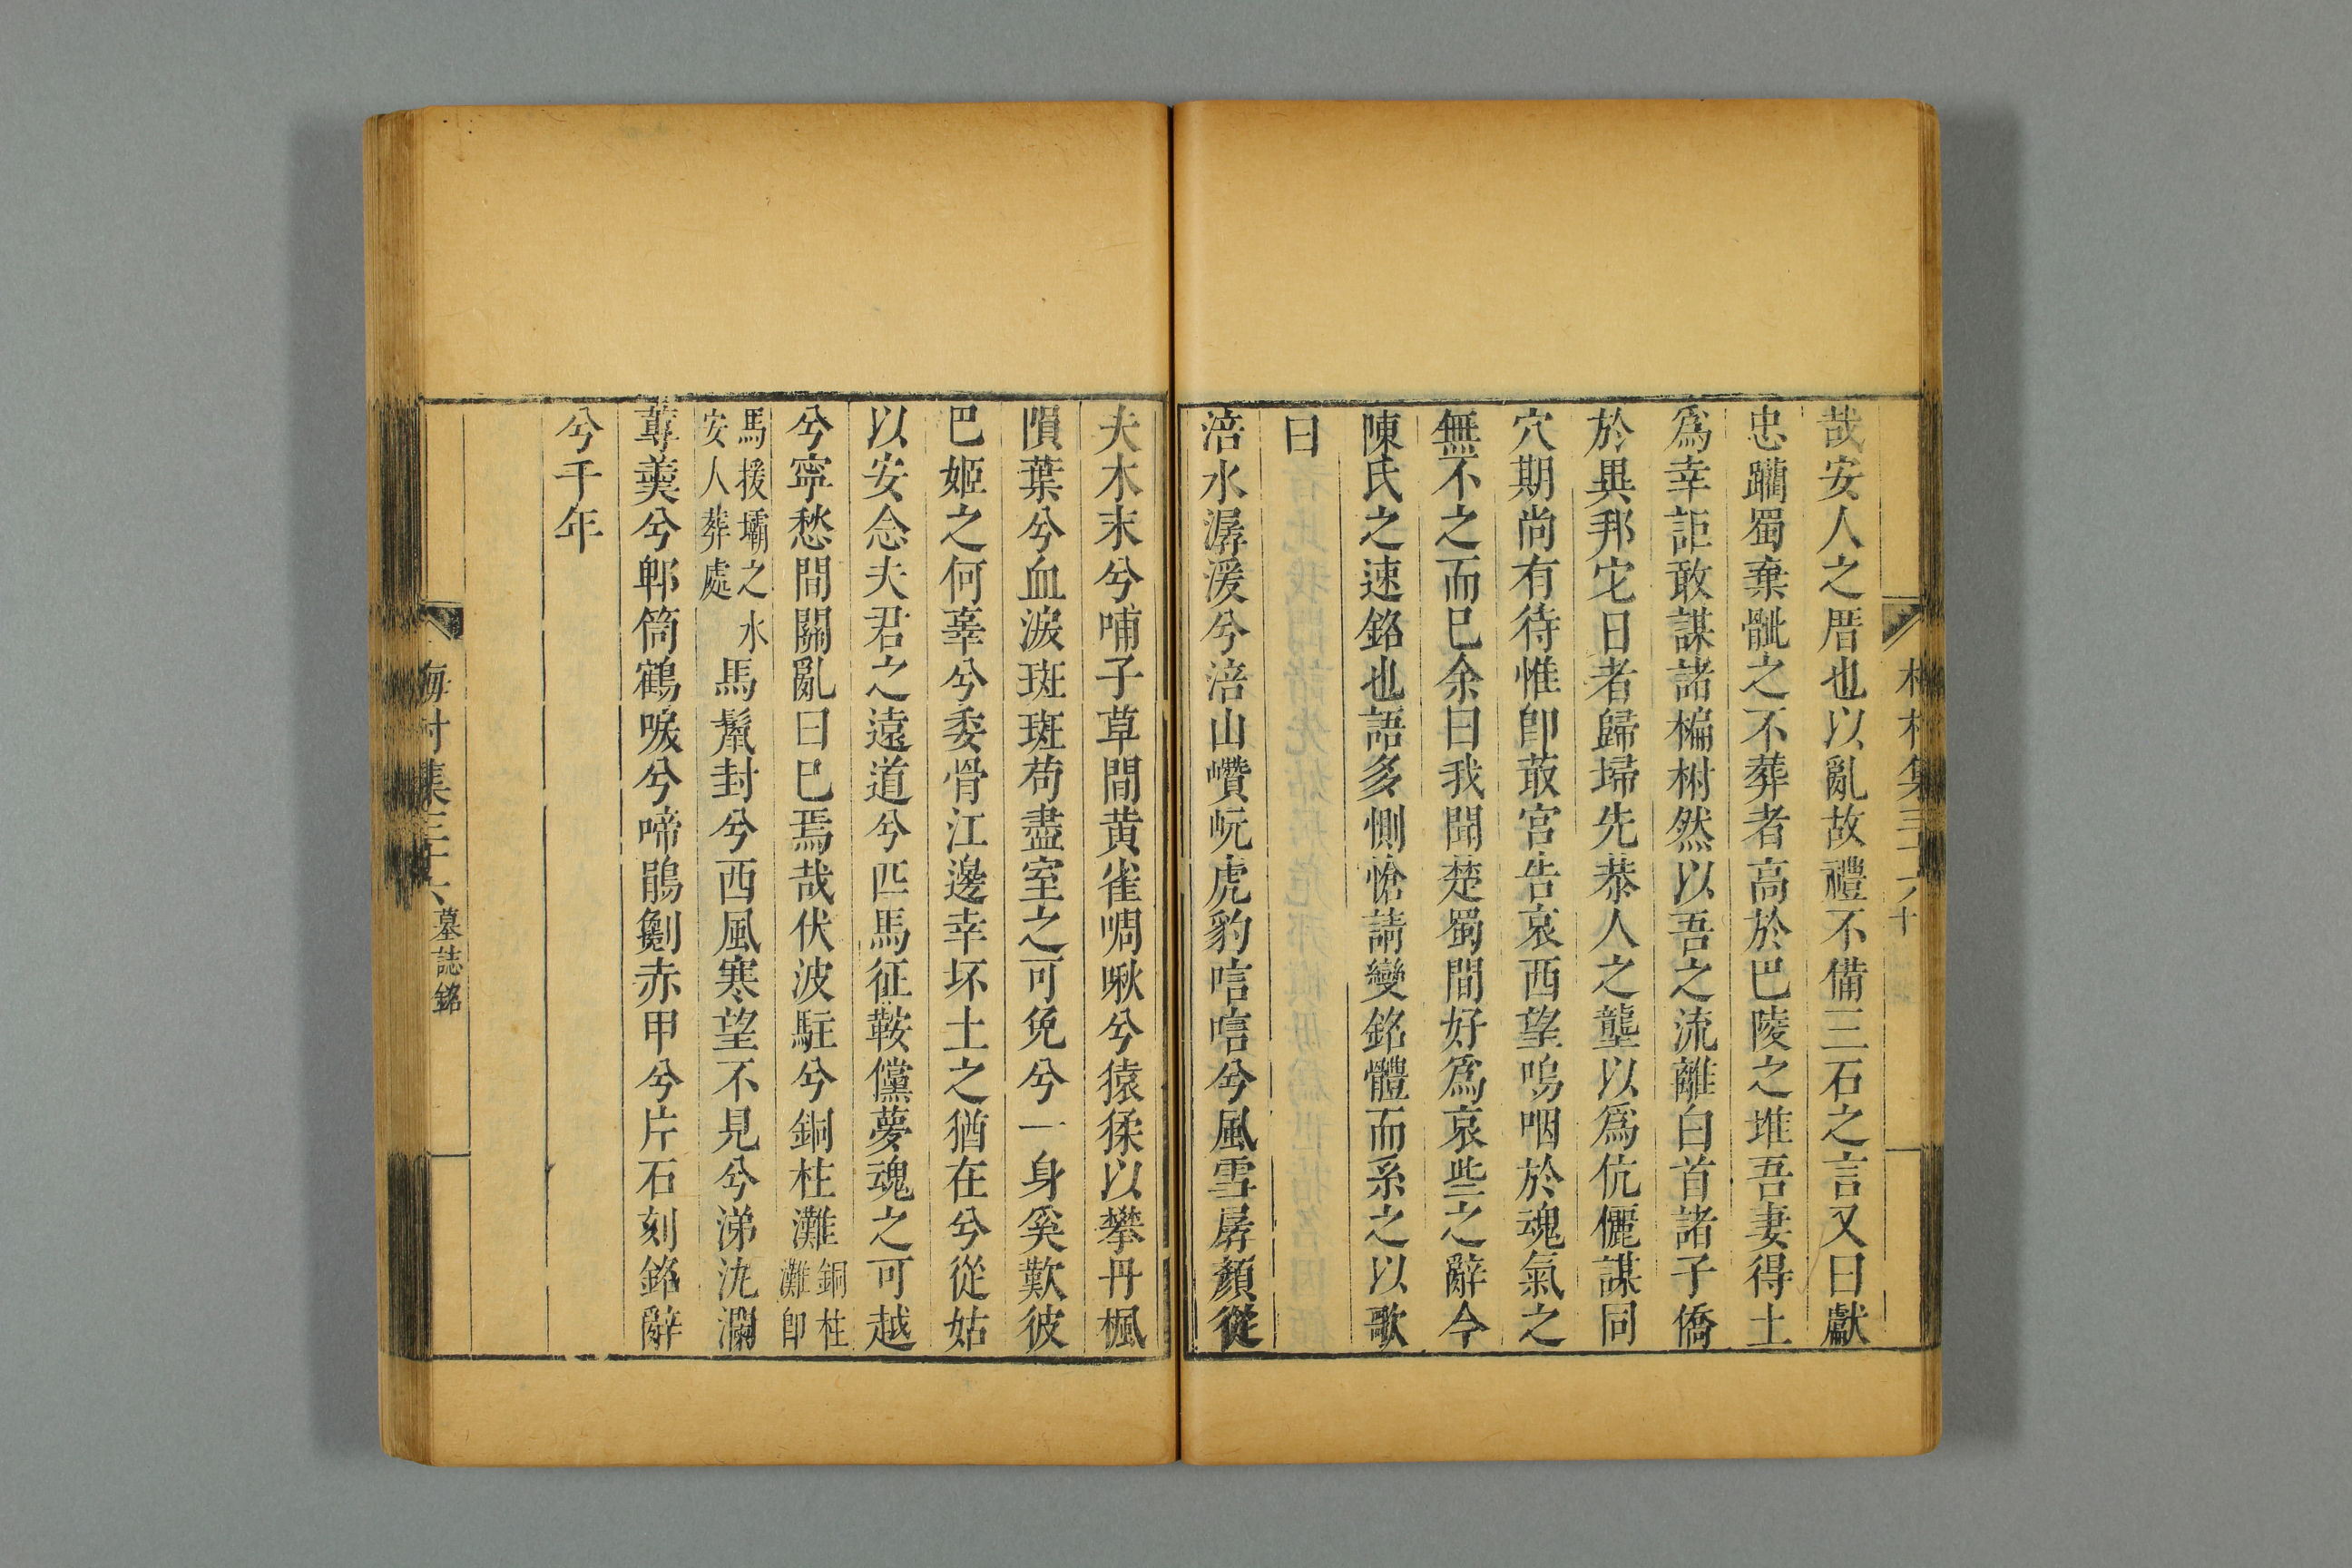 哉安人之厝也以亂故禮不備三石之言又曰獻
忠躪蜀棄骴之不葬者高於巴陵之堆吾妻得土
爲幸詎敢謀諸楄柎然以吾之流離白首諸子僑
於異邦它日者歸埽先恭人之壟以爲伉儷謀同
穴期尚有待惟卽敢宮告哀西望嗚咽於魂氣之
無不之而已余曰我聞楚蜀間好爲哀些之辭今
陳氏之速銘也語多惻愴請變銘體而系之以歌
曰
涪水潺湲兮涪山巑岏虎豹唁唁兮風雪孱顏從
夫木末兮哺子草間黃雀啁啾兮猿猱以攀丹楓
隕葉兮血淚斑斑苟盡室之可免兮一身奚歎彼
巴姬之何辜兮委骨江邊幸坏土之猶在兮從姑
以安念夫君之遠道兮匹馬征鞍儻夢魂之可越
兮寧愁間關亂曰巳焉哉伏波駐兮銅柱灘銅柱灘卽
馬援壩之水安人葬處馬鬣封兮西風寒望不見兮涕沈瀾
蓴羹兮郫筒鶴唳兮啼鵑劖赤甲兮片石刻銘辭
兮千年
海村集三十六
墓誌銘